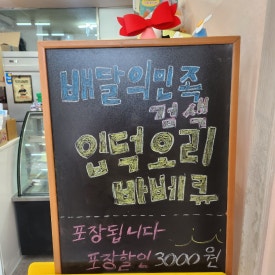 배달의민족
검색
입덕오리
바베큐
포장됩니다
포장할인 3000원